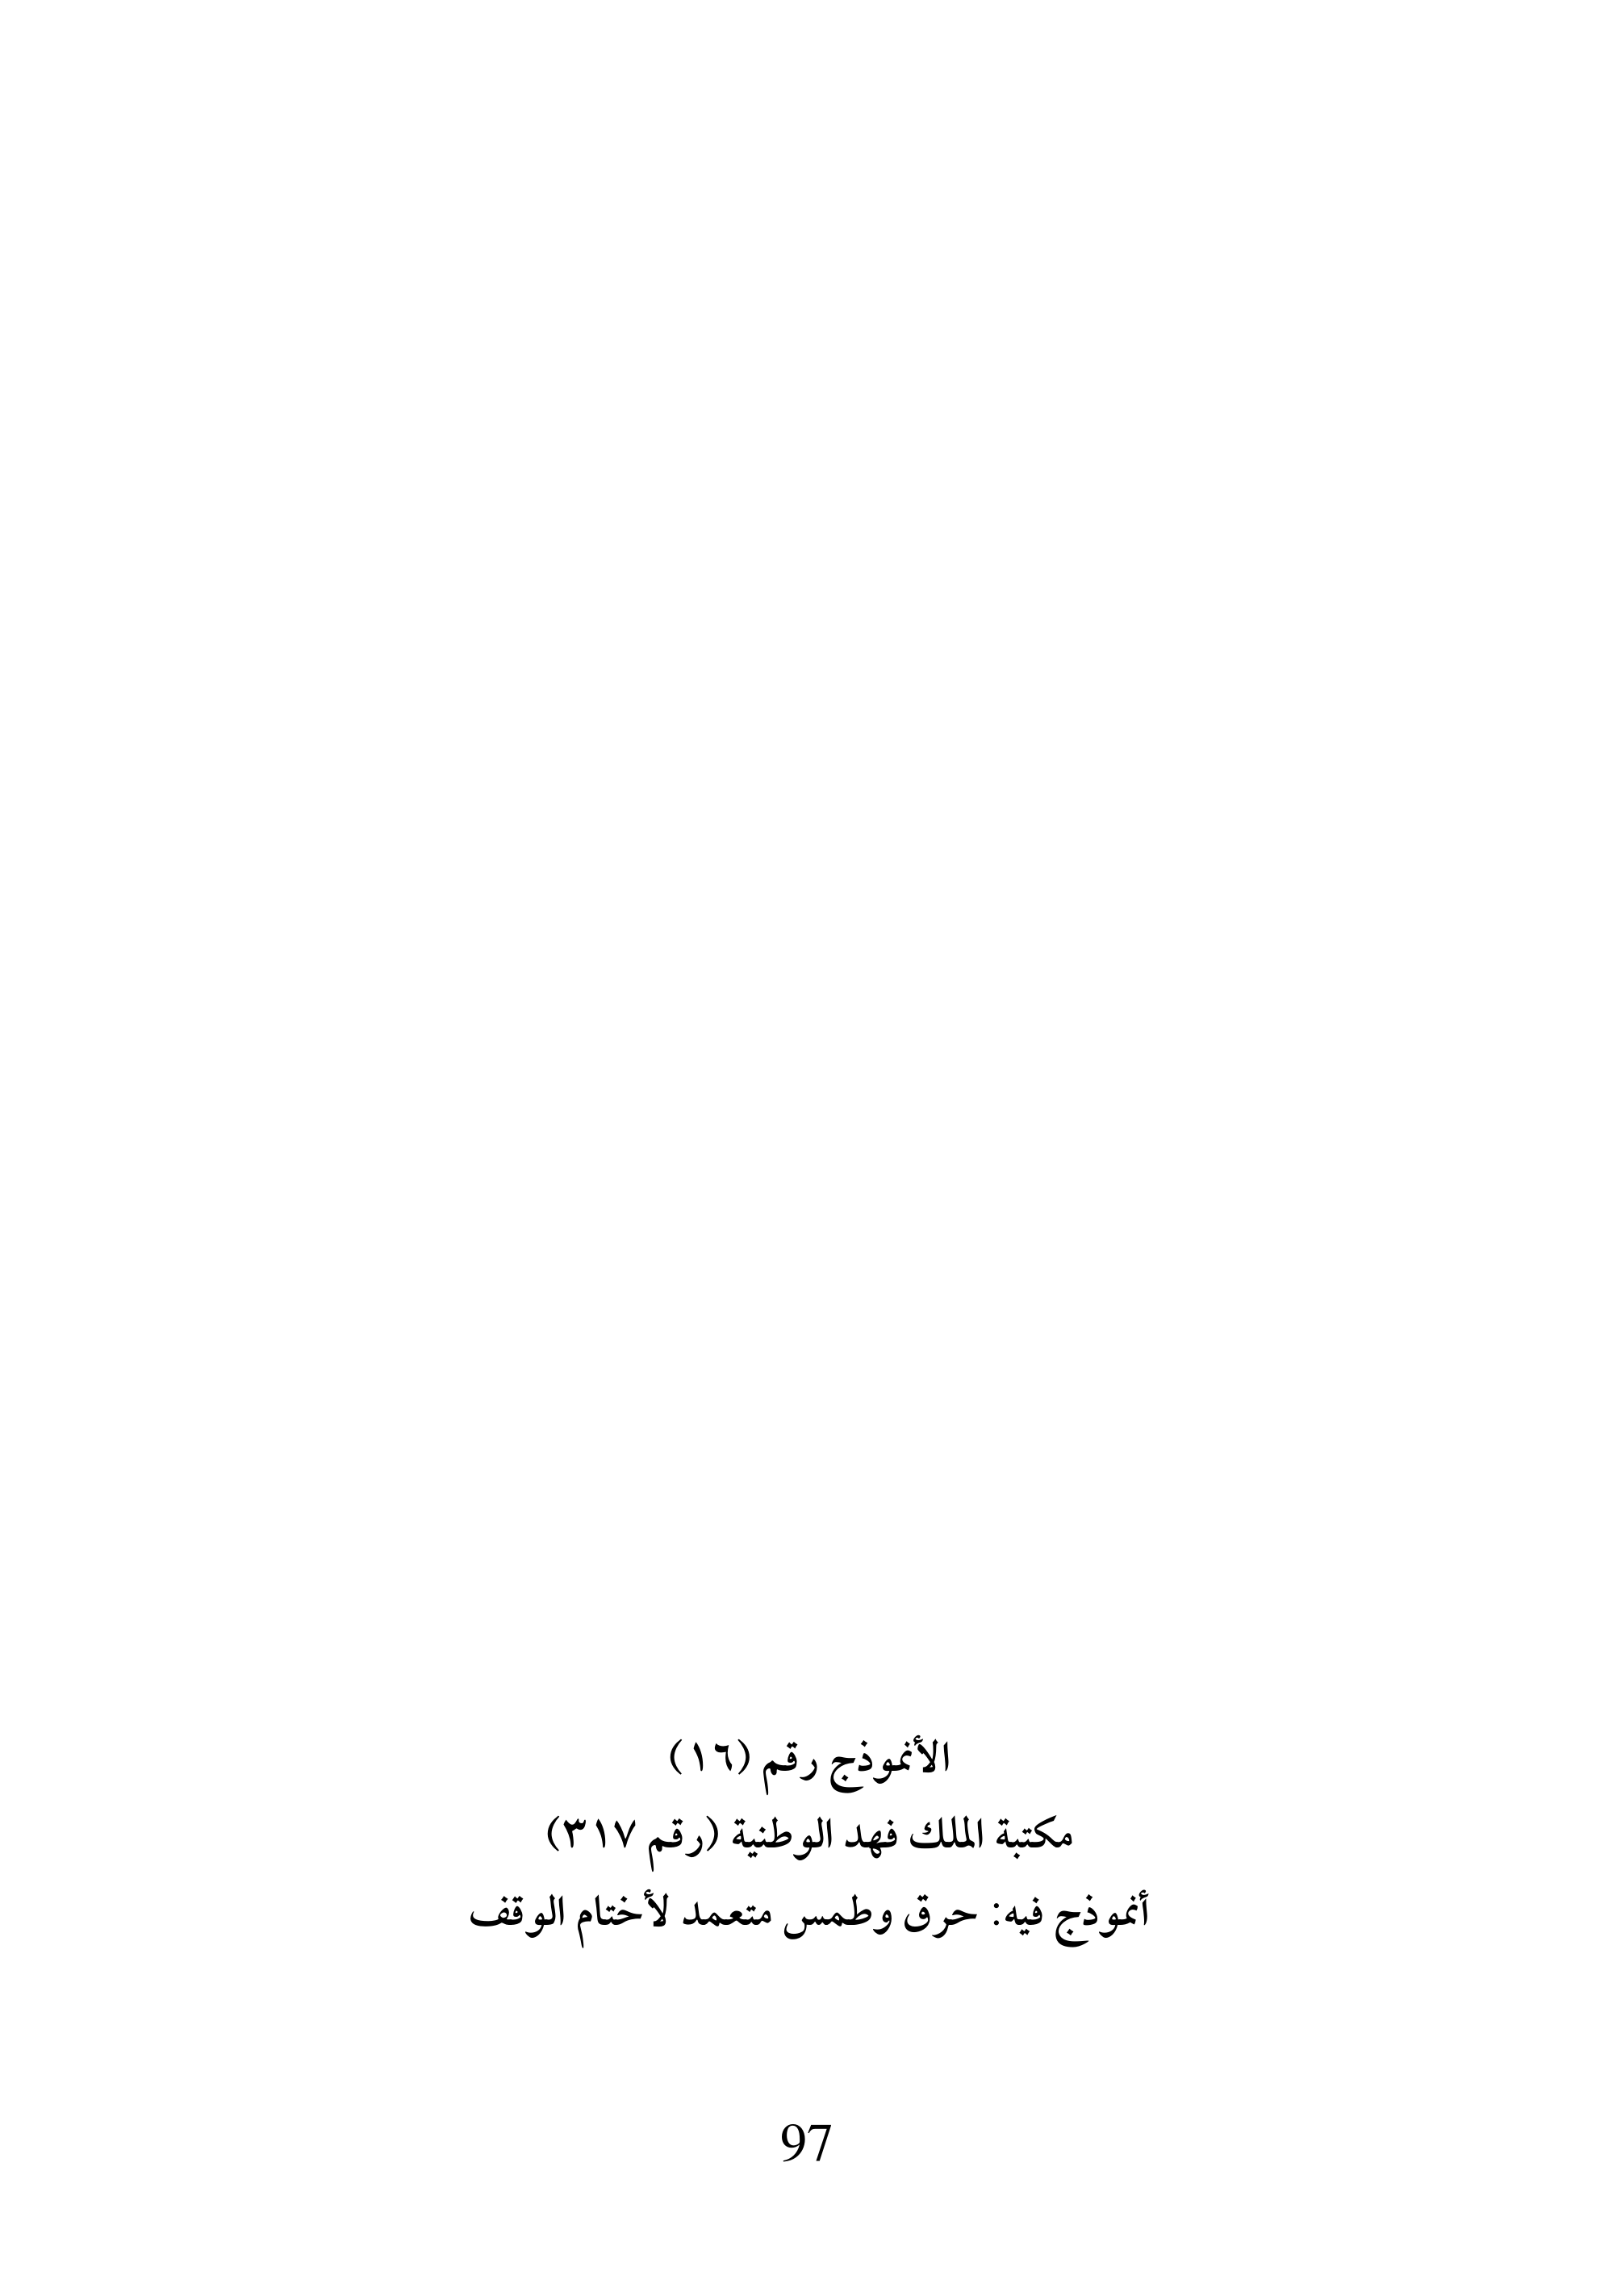 الأنموذج رقم (١٦)
مكتبة الملك فهد الوطنية (رقم ٣١٧)
أنموذج فيه: حرق وطمس متعمد لأختام الوقف
97